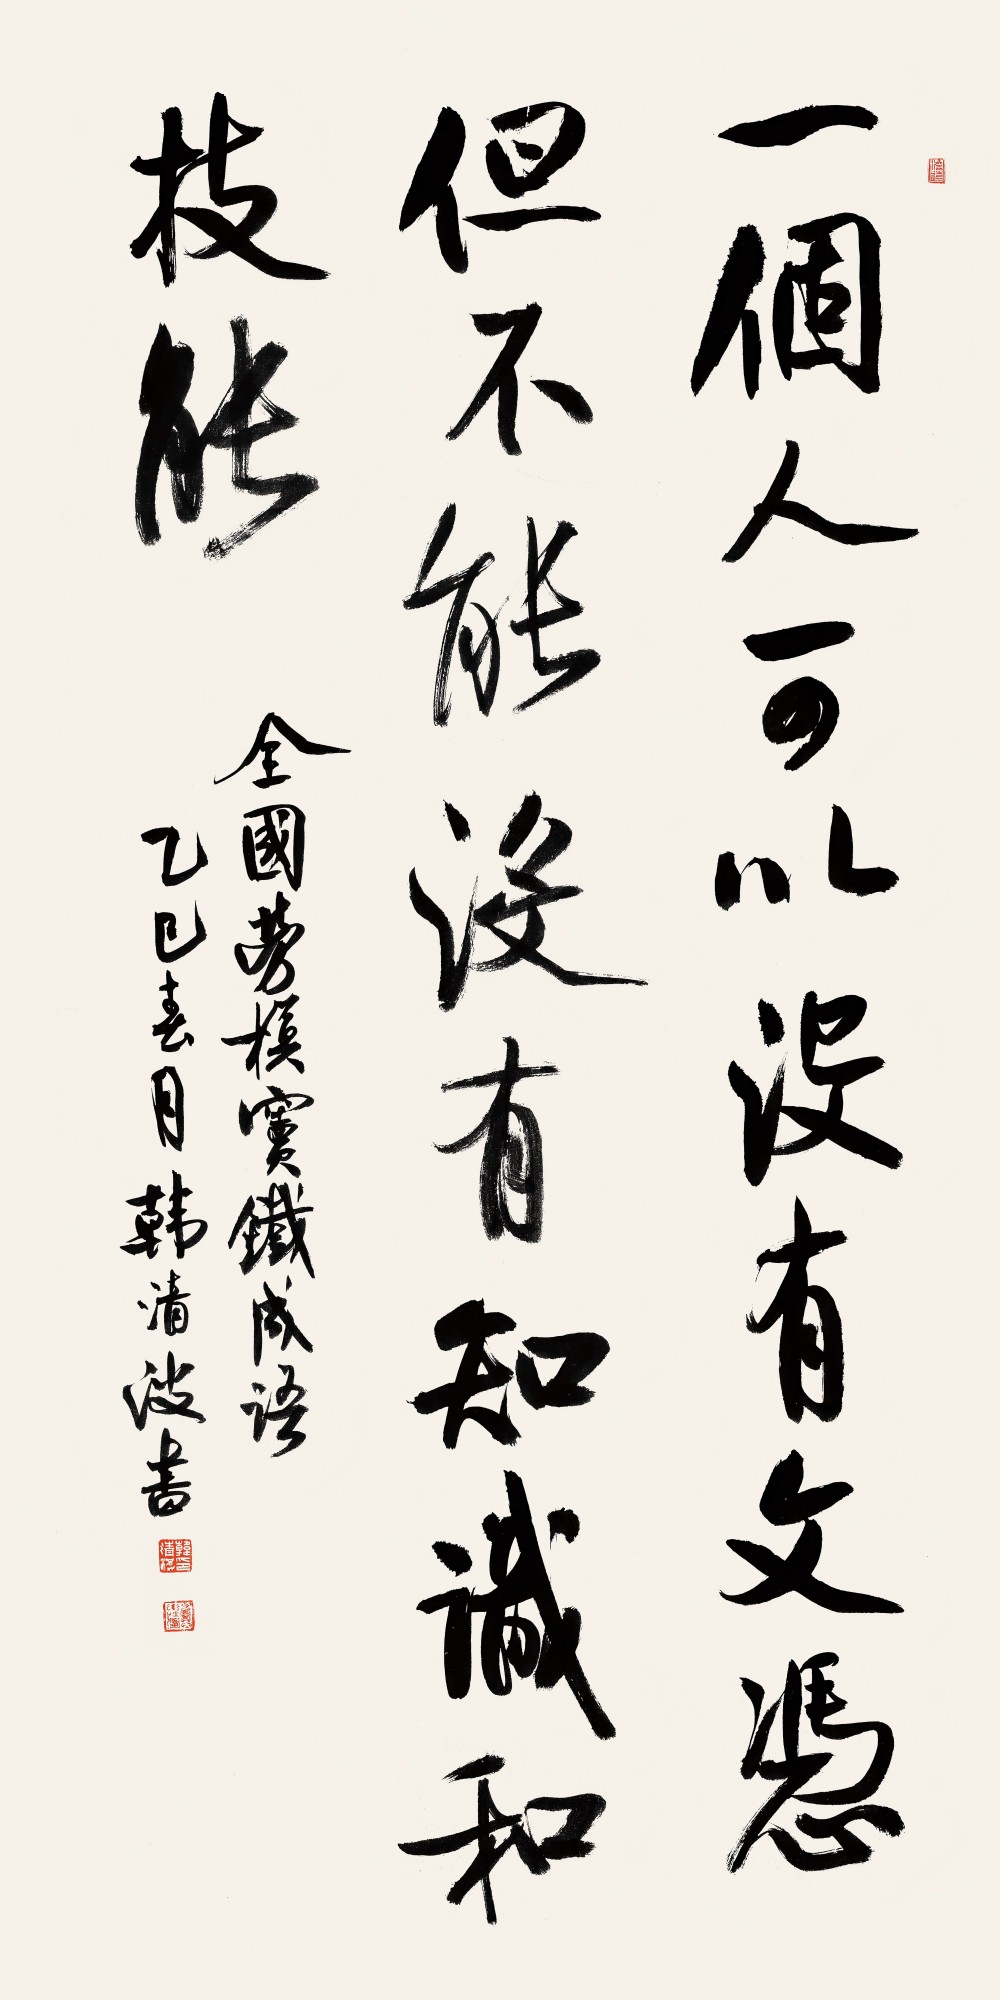 一個人可以没有文憑
但不能没有知識和
技能
全國勞模竇鐵成語
乙巳春月韓清波書